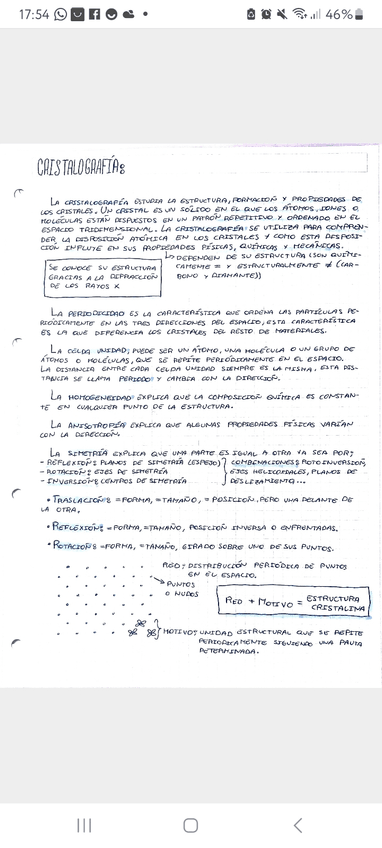 17:54 46%
CRISTALOGRAFÍA:
LA CRISTALOGRAFÍA ESTUDIA LA ESTRUCTURA, FORMACIÓN Y PROPIEDADES DE
LOS CRISTALES. UN CRISTAL ES UN SÓLIDO EN EL QUE LOS ÁTOMOS, IONES O
MOLÉCULAS ESTÁN DISPUESTOS EN UN PATRÓN REPETITIVO Y ORDENADO EN EL
ESPACIO TRIDIMENSIONAL. LA CRISTALOGRAFÍA SE UTILIZA PARA COMPREN-
DER LA DISPOSICIÓN ATÓMICA EN LOS CRISTALES Y COMO ESTA DISPOSI-
CIÓN INFLUYE EN SUS PROPIEDADES FÍSICAS, QUÍMICAS Y MECÁNICAS.
DEPENDEN DE SU ESTRUCTURA (SON QUÍMI-
CAMENTE = Y ESTRUCTURALMENTE ≠ (CAR-
BONO Y DIAMANTE))
SE CONOCE SU ESTRUCTURA
GRACIAS A LA DIFRACCIÓN
DE LOS RAYOS X
LA PERIODICIDAD ES LA CARACTERÍSTICA QUE ORDENA LAS PARTÍCULAS PE-
RIÓDICAMENTE EN LAS TRES DIRECCIONES DEL ESPACIO, ESTA CARACTERÍSTICA
ES LA QUE DIFERENCIA LOS CRISTALES DEL RESTO DE MATERIALES.
LA CELDA UNIDAD; PUEDE SER UN ÁTOMO, UNA MOLÉCULA O UN GRUPO DE
ÁTOMOS O MOLÉCULAS, QUE SE REPITE PERIÓDICAMENTE EN EL ESPACIO.
LA DISTANCIA ENTRE CADA CELDA UNIDAD SIEMPRE ES LA MISMA, ESTA DIS-
TANCIA SE LLAMA PERIODO Y CAMBIA CON LA DIRECCIÓN.
LA HOMOGENEIDAD EXPLICA QUE LA COMPOSICIÓN QUÍMICA ES CONSTAN-
TE EN CUALQUIER PUNTO DE LA ESTRUCTURA.
LA ANISOTROPÍA EXPLICA QUE ALGUNAS PROPIEDADES FÍSICAS VARÍAN
CON LA DIRECCIÓN.
LA SIMETRÍA EXPLICA QUE UNA PARTE ES IGUAL A OTRA YA SEA POR;
- REFLEXIÓN: PLANOS DE SIMETRÍA (ESPEJO) COMBINACIONES; ROTOINVERSIÓN,
- ROTACIÓN: EJES DE SIMETRÍA EJES HELICOIDALES, PLANOS DE
- INVERSIÓN: CENTROS DE SIMETRÍA DESLIZAMIENTO...
• TRASLACIÓN: = FORMA, = TAMAÑO, = POSICIÓN, PERO UNA DELANTE DE
LA OTRA.
• REFLEXIÓN: = FORMA, = TAMAÑO, POSICIÓN INVERSA O ENFRENTADAS.
• ROTACIÓN: = FORMA, = TAMAÑO, GIRADO SOBRE UNO DE SUS PUNTOS.
RED; DISTRIBUCIÓN PERIÓDICA DE PUNTOS
EN EL ESPACIO.
PUNTOS
O NUDOS
RED + MOTIVO = ESTRUCTURA
CRISTALINA
MOTIVO; UNIDAD ESTRUCTURAL QUE SE REPITE
PERIÓDICAMENTE SIGUIENDO UNA PAUTA
DETERMINADA.